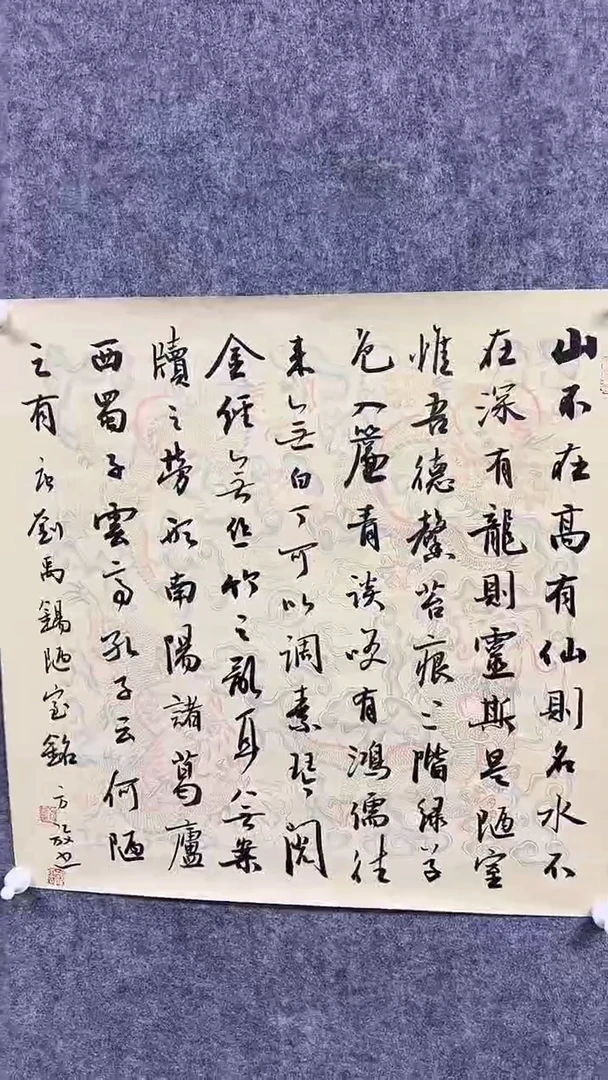 山不在高有仙則名水不
在深有龍則靈斯是陋室
惟吾德馨苔痕上階緑草
色入簾青談咲有鴻儒往
来無白丁可以調素琴閱
金経無丝竹之亂耳無案
牘之勞形南陽諸葛廬
西蜀子雲亭孔子云何陋
之有 唐劉禹錫陋室銘